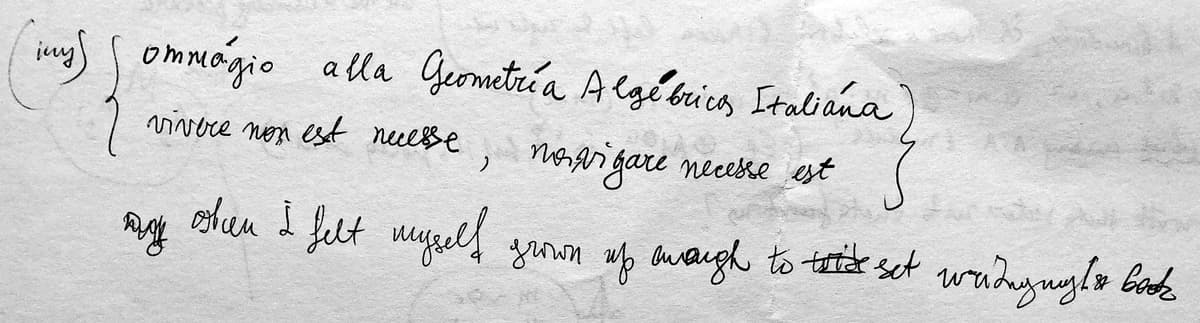 (my) { ommágio alla Geometría Algébrica Italiána }
vivere non est necesse, navigare necesse est
when I felt myself grown up enough to set writing my book